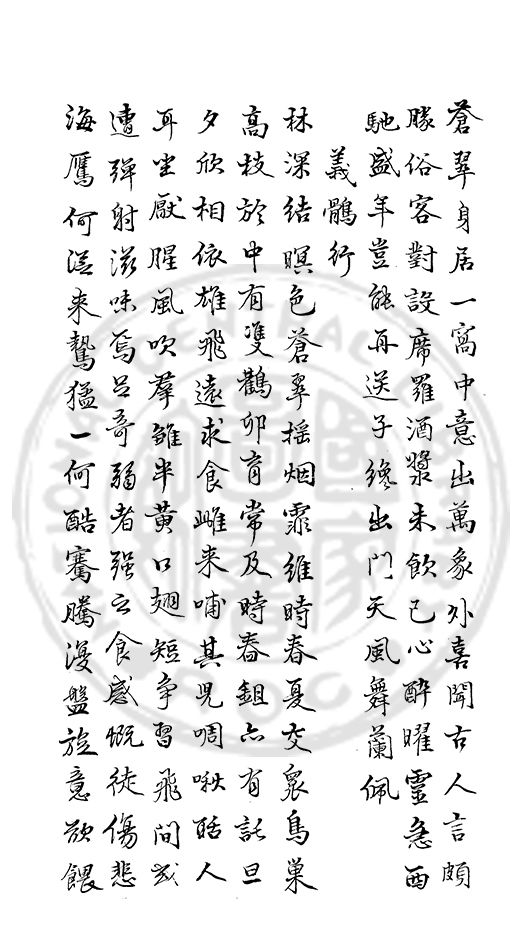 蒼翠身居一窩中意出萬象外喜聞古人言頗
勝俗客對設席羅酒漿未飲已心醉曜靈急西
馳盛年豈能再送子纔出門天風舞蘭佩
義鶻行
林深結暝色蒼翠搖烟霏維時春夏交衆鳥巢
高枝於中有雙鸛卵育常及時春鉏亦有託旦
夕欣相依雄飛遠求食雌来哺其児啁啾聒人
耳坐厭腥風吹羣雛半黄口翅短争習飛間或
遭彈射滋味焉足奇弱者强之食感慨徒傷悲
海鷹何從来鷙猛一何酷騫騰漫盤旋意欲餵